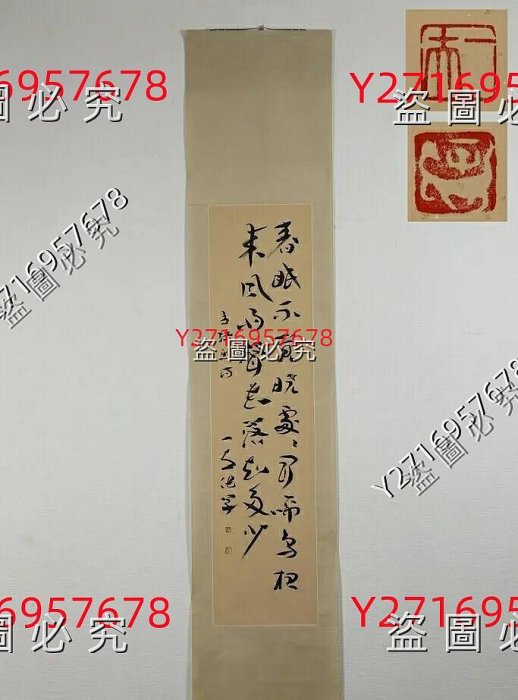 6957678
圖必究
Y271695
盜圖必究
Y2716957678
盜圖必究
春眠不覺曉處々聞啼鳥夜
来風雨聲花落知多少
孟浩然詩
Y2716957678
盜圖必究
Y2716957678
盜圖必究
6957678
圖必究
Y271695
盜圖必究